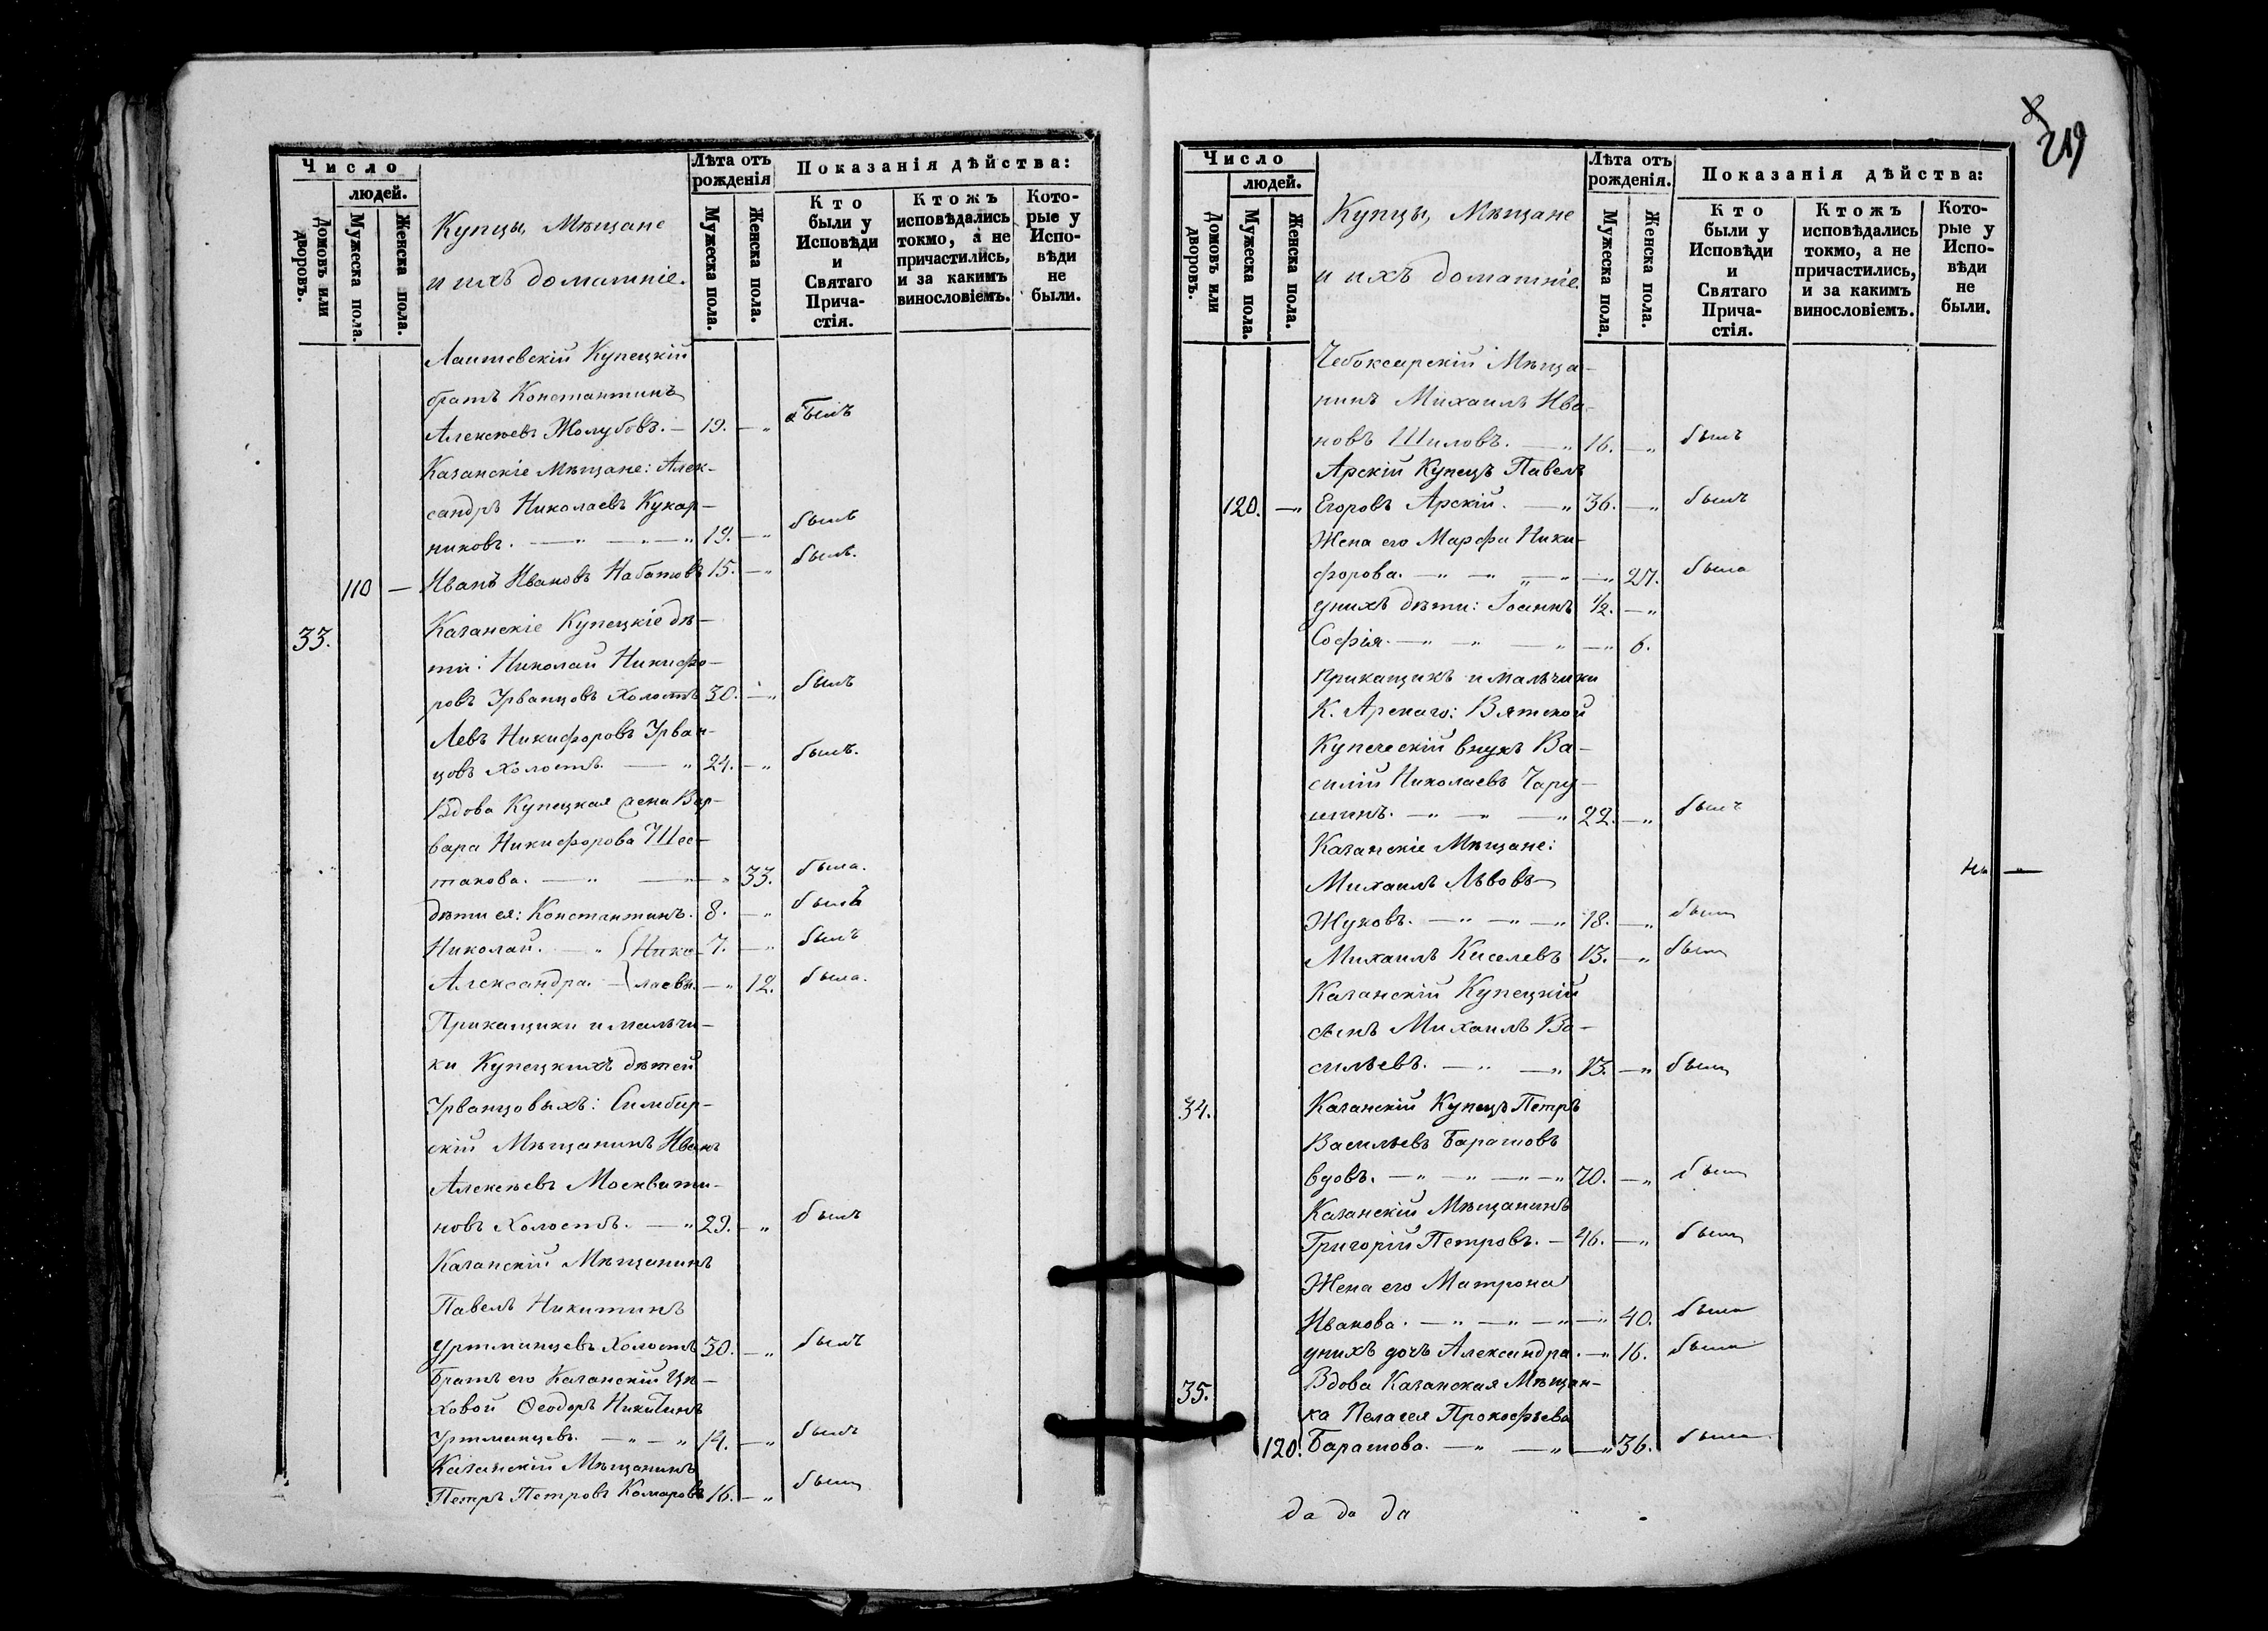 Число
людей.
Домовъ или дворовъ.
Мужеска пола.
Женска пола.
Купцы, Мѣщане
и ихъ домашніе.
Лѣта отъ
рожденія
Мужеска пола.
Женска пола.
Показанія дѣйства:
Кто
были у
Исповѣди
и
Святаго
Прича-
стія.
Ктожъ
исповѣдались
токмо, а не
причастились,
и за какимъ
винословіемъ.
Кото-
рые у
Испо-
вѣди
не
были.
Лаишевскій Купецкій
братъ Константинъ
Алексѣевъ Жолубовъ. — 19. — „ былъ
Казанскіе Мѣщане: Алек-
сандръ Николаевъ Кукар-
никовъ. — „ — „ — „ 19. — „ былъ
110 — Иванъ Ивановъ Набатовъ 15. — „ былъ.
33. Казанскіе Купецкіе дѣ-
ти: Николай Никифо-
ровъ Урванцовъ Холостъ 30. — „ былъ
Левъ Никифоровъ Урван-
цовъ Холостъ. — „ 24. — „ былъ.
Вдова Купецкая жена Вар-
вара Никифорова Шес-
такова. — „ — „ 33. была.
дѣти ея: Константинъ. 8. — „ былъ
Николай. — „ { Нико- 7. — „ былъ
Александра. — { лаевы. — „ 12. была.
Прикащики и мальчи-
ки Купецкихъ дѣтей
Урванцовыхъ: Симбир-
скій Мѣщанинъ Иванъ
Алексѣевъ Москвити-
новъ Холостъ. — „ 29. — „ былъ
Казанскій Мѣщанинъ
Павелъ Никитинъ
Уртминцевъ Холостъ 30. — „ былъ
Братъ его Казанскій Цѣ-
ховой Ѳеодоръ Никитинъ
Уртминцевъ. — „ — „ 14. — „ былъ
Казанскій Мѣщанинъ
Петръ Петровъ Комаровъ 16. — „ былъ
219
Число
людей.
Домовъ или дворовъ.
Мужеска пола.
Женска пола.
Купцы, Мѣщане
и ихъ домашніе.
Лѣта отъ
рожденія.
Мужеска пола.
Женска пола.
Показанія дѣйства:
Кто
были у
Исповѣди
и
Святаго
Прича-
стія.
Ктожъ
исповѣдались
токмо, а не
причастились,
и за какимъ
винословіемъ.
Кото-
рые у
Испо-
вѣди
не
были.
Чебоксарскій Мѣща-
нинъ Михаилъ Ива-
новъ Шиловъ. — „ 16. — „ былъ
Арскій Купецъ Павелъ
120. — „ Егоровъ Арскій. — „ 36. — „ былъ
Жена его Марфа Ники-
форова. — „ — „ — „ — „ 27. была
у нихъ дѣти: Іоаннъ ½. — „
Софія. — „ — „ — „ — „ 6.
Прикащикъ и мальчики
К. Арскаго: Вятской
Купеческій внукъ Ва-
силій Николаевъ Чару-
шинъ. — „ — „ — „ 22. — „ былъ
Казанскіе Мѣщане:
Михаилъ Львовъ
Жуковъ. — „ — „ — „ 18. — „ былъ
Михаилъ Киселевъ 13. — „ былъ
Казанскій Купецкій
сынъ Михаилъ Ва-
сильевъ. — „ — „ 13. — „ былъ
34. Казанскій Купецъ Петръ
Васильевъ Баратовъ
вдовъ. — „ — „ — „ — „ 70. — „ былъ
Казанскій Мѣщанинъ
Григорій Петровъ. — 46. — „ былъ
Жена его Матрона
Иванова. — „ — „ — „ — „ 40. была
у нихъ дочь Александра. — „ 16. была
35. Вдова Казанская Мѣщан-
ка Пелагея Прокофьева
120. Баратова. — „ — „ — „ 36. была
да да да